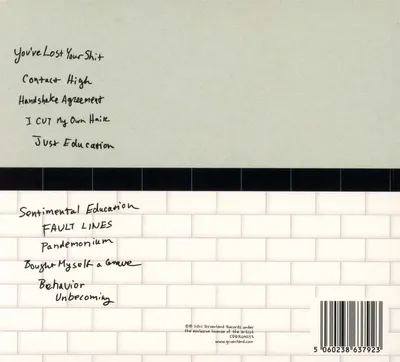 You've Lost Your Shit
Contact High
Handshake Agreement
I CUT My Own Hair
Just Education
Sentimental Education
FAULT LINES
Pandemonium
Bought Myself a Grave
Behavior
Unbecoming
Grönland Records under
the exclusive license of the artist
www.groenland.com
5 060238 637923